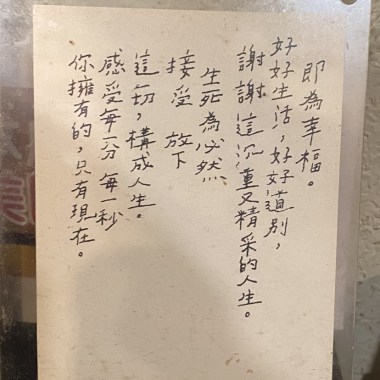 你擁有的，只有現在。
感受每一分 每一秒
這一切，構成人生。
接受 放下
生死為必然
謝謝這沉重又精采的人生。
好好生活，好好道別，
即為幸福。